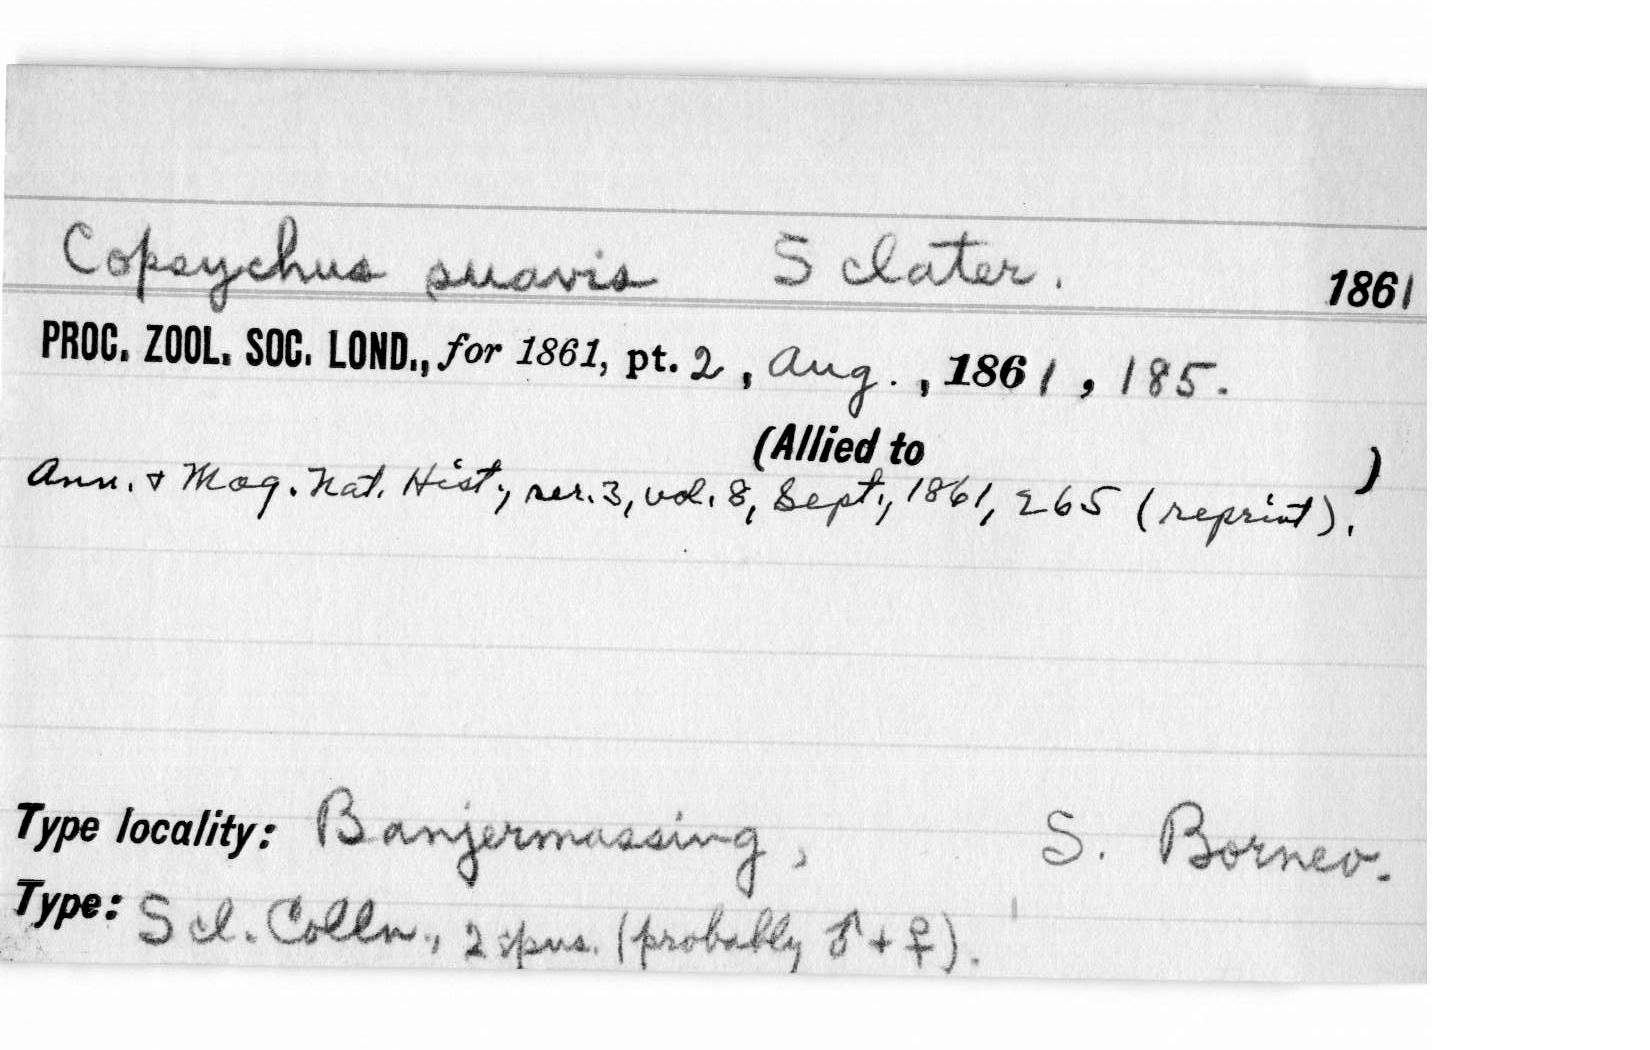 Copsychus suavis Sclater. 1861
PROC. ZOOL. SOC. LOND., for 1861, pt. 2, Aug., 1861, 185.
(Allied to )
Ann. & Mag. Nat. Hist., ser. 3, vol. 8, Sept., 1861, 265 (reprint).
Type locality: Banjermassing, S. Borneo.
Type: Scl. Colln., 2 spns. (probably ♂ + ♀).